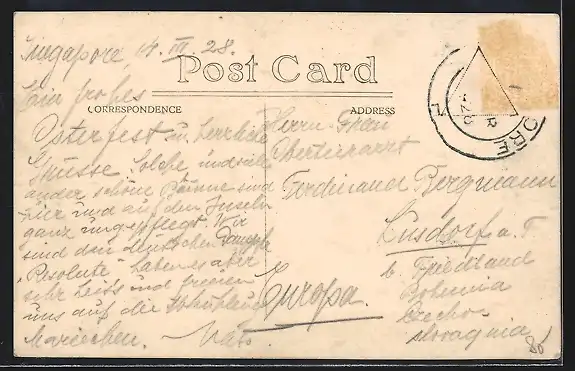 Singapore, 14. III. 28.
Post Card
CORRESPONDENCE
ADDRESS
Ein frohes
Osterfest u. herrliche
Grüsse. Solche und viele
ander schöne Bäume sind
hier und auf den Inseln
ganz ungepflegt. Wir
sind den deutschen Dampfer
"Resolute" haben es aber
sehr heiss und freuen
uns auf die
Mariechen.
Herrn u. Frau
Obertierarzt
Ferdinand Bergmann
Lusdorf a. T.
b. Friedland
Bohemia
Czecho-
slovaquia
Europa.
ORE
80